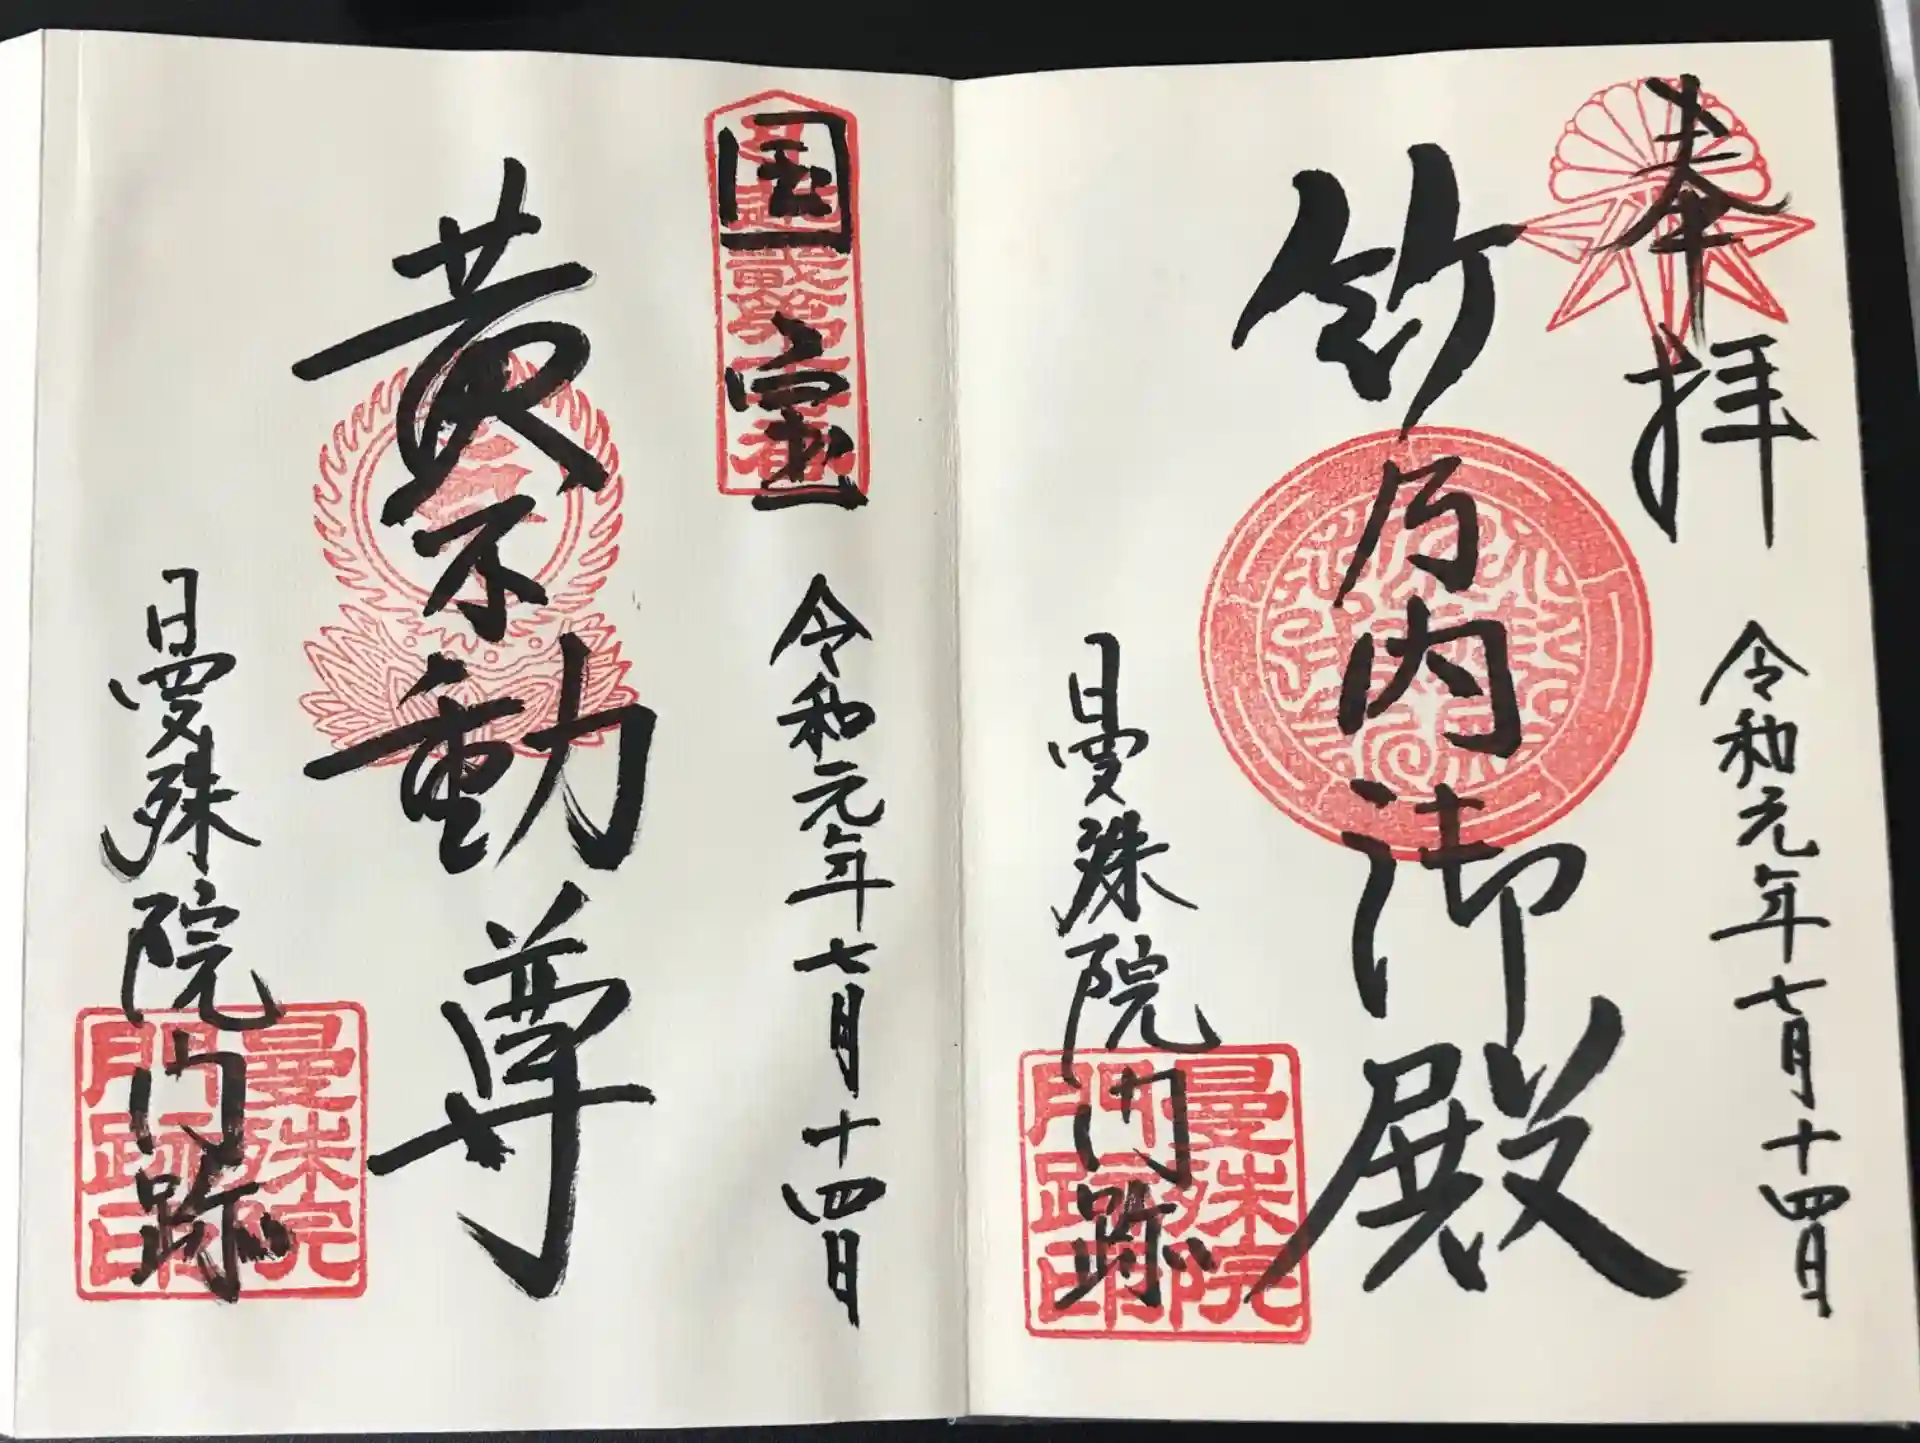 奉拝
竹之内御殿
令和元年七月十四日
曼殊院門跡
曼殊院
門跡印
国宝
黄不動尊
令和元年七月十四日
曼殊院門跡
曼殊院
門跡印